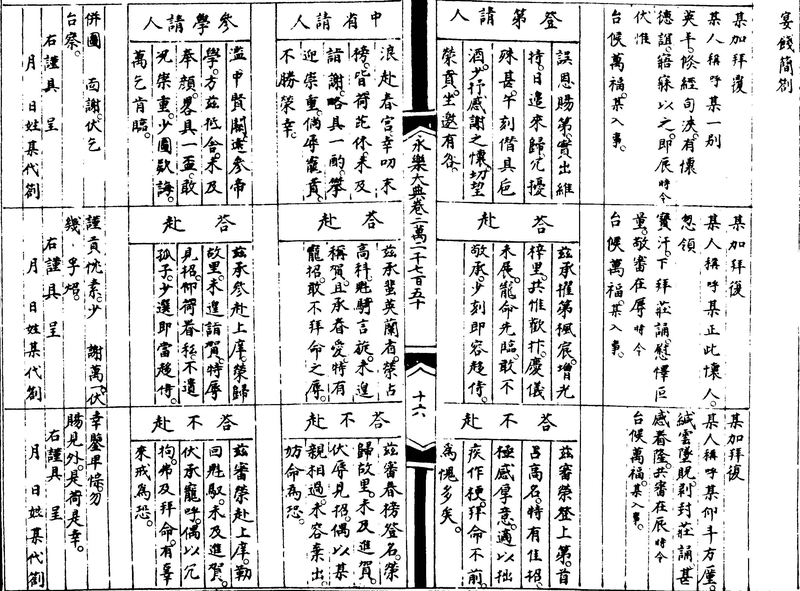 宴餞簡劄
某加拜覆
某人稱呼某一別
芙丰倐經旬浹有懷
德誼寤寐以之即辰時令
伏惟
台候萬福某入事
登第請人
誤恩賜第實出維
持日邉來歸冗擾
殊甚午刻偕具巵
酒少抒感謝之懷切望
榮賁坐邀有咎
中省請人
浪赴春宮幸叨末
榜皆荷芘休未及
詣謝略具一酌攀
迎崇重倘辱寵賁
不勝榮幸
參學請人
濫中賢關遠參帝
學方兹抵舍未及
奉顏畧具一盃敢
況崇重少圖欵誨
萬乞肯臨
併圖 面謝伏乞
台察
右謹具 呈
月 日姓某代劄
某加拜復
某人稱呼某正此懷人
忽領
寳汗下拜莊誦慰懌叵
量敬審在辱時令
台候萬福某入事
答赴
兹承擢第楓宸增光
梓里共惟歡抃慶儀
未展寵命先臨敢不
敬承少刻即容趍侍
答赴
兹承蜚英蘭省榮占
高科甡騎言旋未遑
稱賀且承眷愛特有
寵招敢不拜命之辱
答赴
兹承參赴上庠榮歸
故里未進請賀特辱
見招仰荷眷私不遺
孤子少選即當趍侍
謹賁忱素少 謝萬一伏
幾 孚炤
右謹具 呈
月 日姓某代劄
某加拜復
某人稱呼某仰斗方壓
緘雲墜貺剥封莊誦甚
感眷隆共審在辰時令
台候萬福某入事
答不赴
兹審榮登上第首
呂高名特有佳招
極感厚意適以拙
疾作梗拜命不前
為愧多矣
答不赴
兹審春榜登名榮
歸故里未及進賀
伏辱見招偶以某
親相過未容棄出
妨命為恐
答不赴
兹審榮赴上庠勒
回甡馭未及進賀
伏承寵呼偶以冗
拘弗及拜命有辜
來戒為恐
幸鑒畢悰勿
賜見外是荷是幸
右謹具 呈
月 日姓某代劄
永樂大典卷二萬二千七百五十
十六